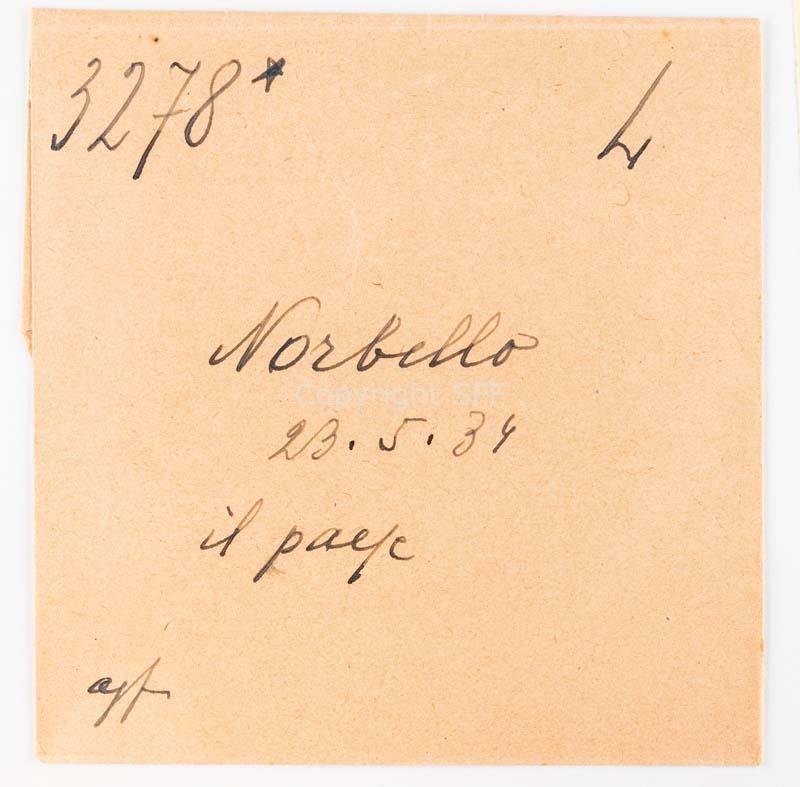 3278* L
Norbello
Copyright SFF
23.5.34
il paese
agf